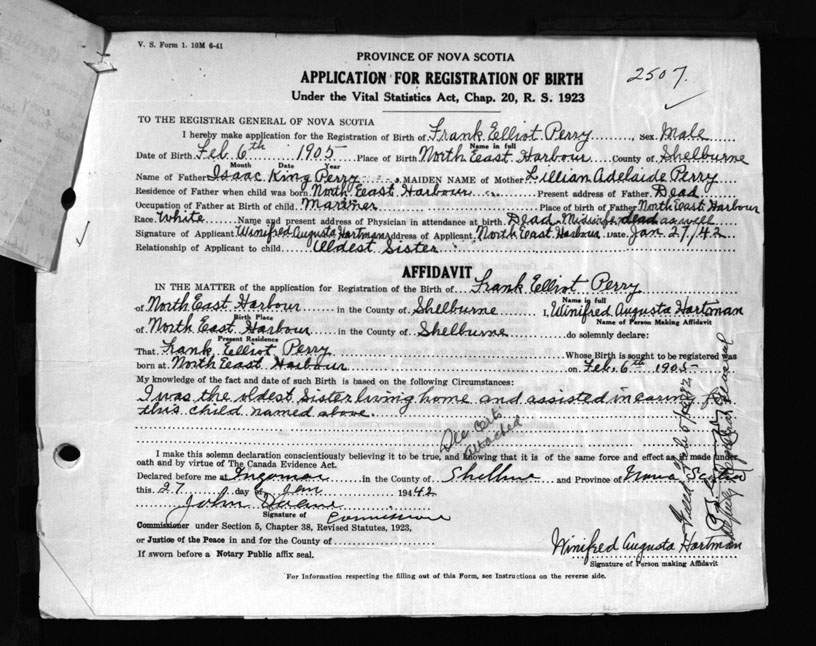 V. S. Form 1. 10M 6-41
PROVINCE OF NOVA SCOTIA
APPLICATION FOR REGISTRATION OF BIRTH
2507.
Under the Vital Statistics Act, Chap. 20, R. S. 1923
TO THE REGISTRAR GENERAL OF NOVA SCOTIA
I hereby make application for the Registration of Birth of Frank Elliot Perry, Sex Male
Name in full
Date of Birth Feb 6th 1905 Place of Birth North East Harbour County of Shelburne
Month Date Year
Name of Father Isaac King Perry MAIDEN NAME of Mother Lillian Adelaide Perry
Residence of Father when child was born North East Harbour Present address of Father Dead
Occupation of Father at Birth of child. Mariner Place of birth of Father North East Harbour
Race White Name and present address of Physician in attendance at birth Dead, Midwife dead as well
Signature of Applicant Winifred Augusta Hartman Address of Applicant North East Harbour Date Jan 27/42
Relationship of Applicant to child Oldest Sister
AFFIDAVIT
IN THE MATTER of the application for Registration of the Birth of Frank Elliot Perry
Name in full
of North East Harbour in the County of Shelburne I, Winifred Augusta Hartman
Birth Place Name of Person Making Affidavit
of North East Harbour in the County of Shelburne do solemnly declare:
Present Residence
That Frank Elliot Perry Whose Birth is sought to be registered was
born at North East Harbour on Feb. 6th 1905
My knowledge of the fact and date of such Birth is based on the following Circumstances:
I was the oldest Sister living home and assisted in caring for
this child named above.
See certs
attached
I make this solemn declaration conscientiously believing it to be true, and knowing that it is of the same force and effect as if made under
oath and by virtue of The Canada Evidence Act.
Declared before me at Ingomar in the County of Shelburne and Province of Nova Scotia
this 27 day of Jan 1942
John
Signature of
Commissioner under Section 5, Chapter 38, Revised Statutes, 1923,
or Justice of the Peace in and for the County of
If sworn before a Notary Public affix seal.
Winifred Augusta Hartman
Signature of Person making Affidavit
For Information respecting the filling out of this Form, see Instructions on the reverse side.